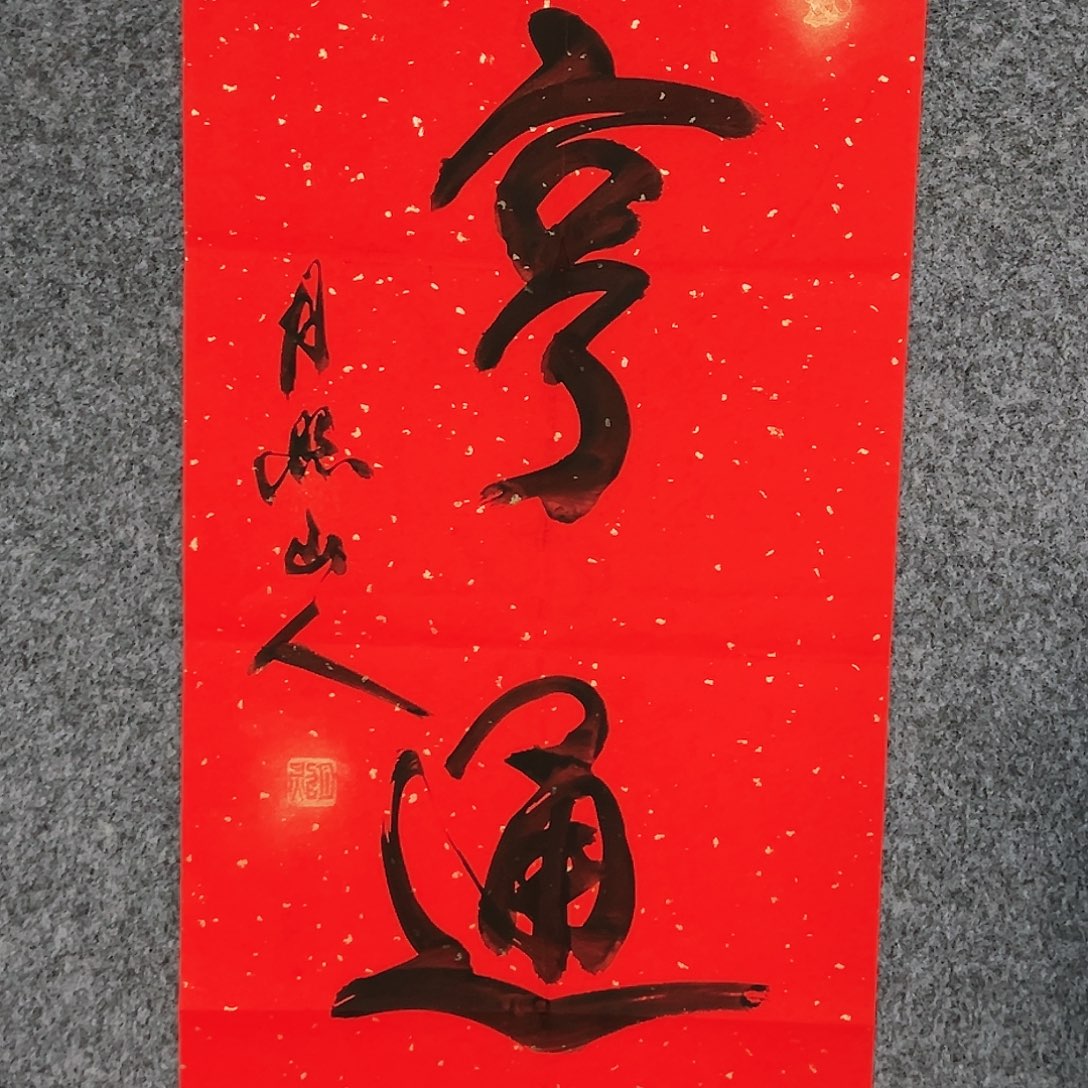 亨通
月照山人